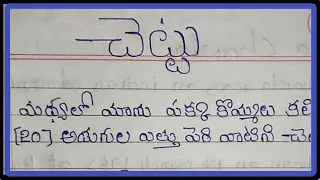 చెట్టు
మధ్యలో మాను పక్కకి కొమ్మలు కలి
[20] అడుగుల ఎత్తు పెరి వాటిని చె